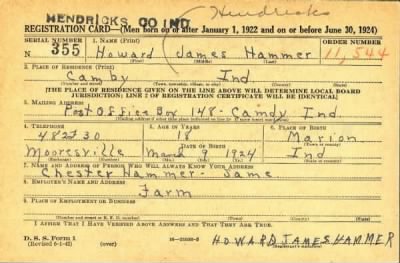 HENDRICKS CO IND.
Hendricks
REGISTRATION CARD—(Men born on or after January 1, 1922 and on or before June 30, 1924)
SERIAL NUMBER 1. NAME (Print) ORDER NUMBER
N 355 Howard James Hammer 11,544
(First) (Middle) (Last)
2. PLACE OF RESIDENCE (Print)
Camby Ind
(Number and street) (Town, township, village, or city) (County) (State)
[THE PLACE OF RESIDENCE GIVEN ON THE LINE ABOVE WILL DETERMINE LOCAL BOARD
JURISDICTION; LINE 2 OF REGISTRATION CERTIFICATE WILL BE IDENTICAL]
3. MAILING ADDRESS
Post Office Box 148 - Camby Ind.
(Mailing address if other than place indicated on line 2. If same insert word same)
4. TELEPHONE 5. AGE IN YEARS 6. PLACE OF BIRTH
482730 18 Marion
DATE OF BIRTH (Town or county)
Mooresville March 9 1924 Ind
(Exchange) (Number) (Mo.) (Day) (Yr.) (State or country)
7. NAME AND ADDRESS OF PERSON WHO WILL ALWAYS KNOW YOUR ADDRESS
Chester Hammer - Same
8. EMPLOYER'S NAME AND ADDRESS
Farm
9. PLACE OF EMPLOYMENT OR BUSINESS
(Number and street or R. F. D. number) (Town) (County) (State)
I AFFIRM THAT I HAVE VERIFIED ABOVE ANSWERS AND THAT THEY ARE TRUE.
D. S. S. Form 1
(Revised 6-1-42) (over) HOWARD JAMES HAMMER
(Registrant's signature)